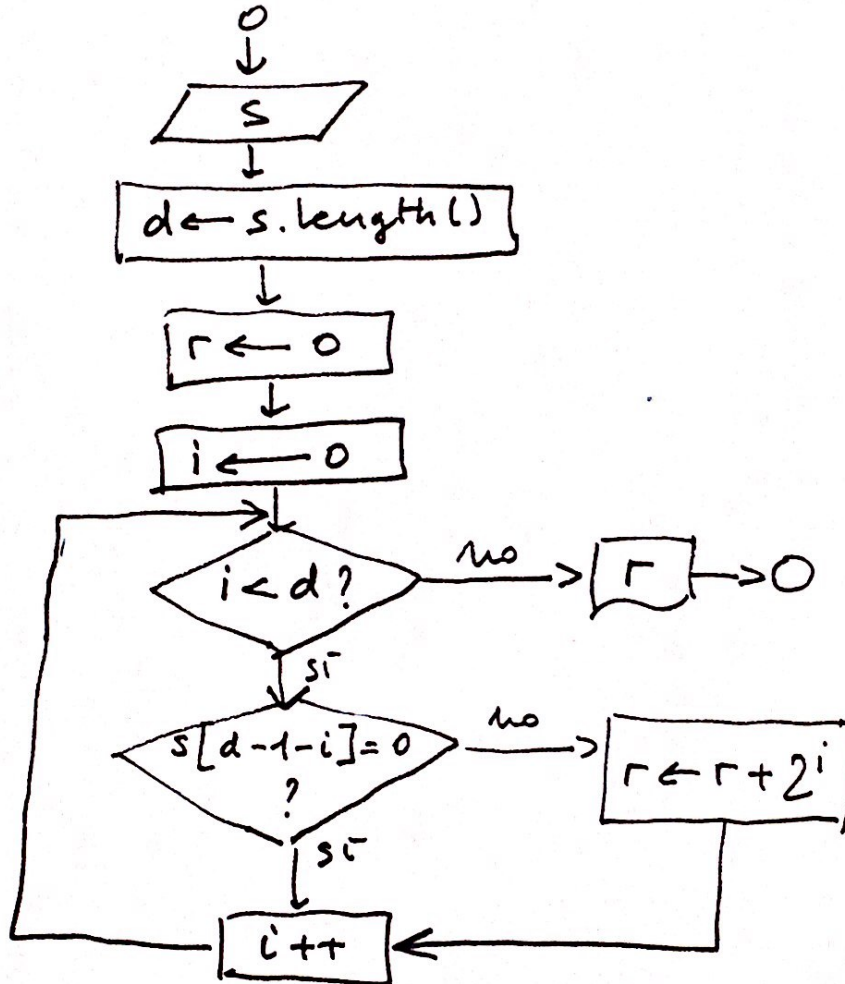 s
d ← s.length()
r ← 0
i ← 0
i < d ?
no
r
sì
s[d-1-i]=0
?
no
r ← r + 2^i
sì
i ++